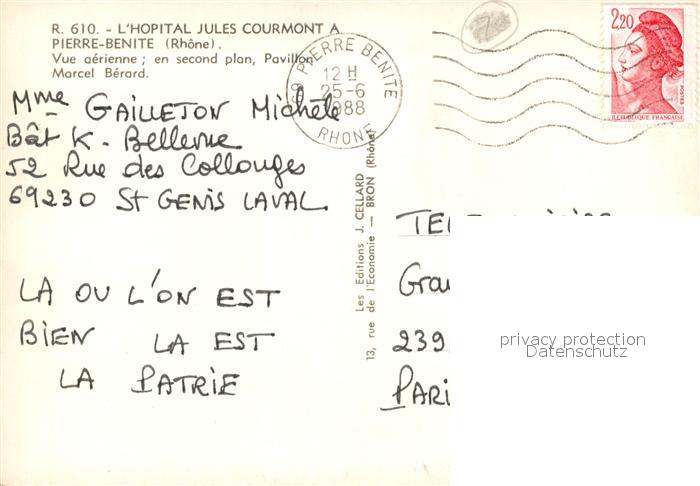 R. 610. - L'HOPITAL JULES COURMONT A
PIERRE-BENITE (Rhône).
Vue aérienne ; en second plan, Pavillon
Marcel Bérard.
Mme GAILLETON Michèle
Bât K. Bellevue
52 Rue des Collonges
69230 St GENIS LAVAL
LA OU L'ON EST
BIEN LA EST
LA PATRIE
PIERRE BENITE
12 H
25-6
1988
RHONE
2,20
POSTES
REPUBLIQUE FRANÇAISE
Les Editions J. CELLARD
13, rue de l'Economie — BRON (Rhône)
TEL
Gra
239
PARI
privacy protection
Datenschutz